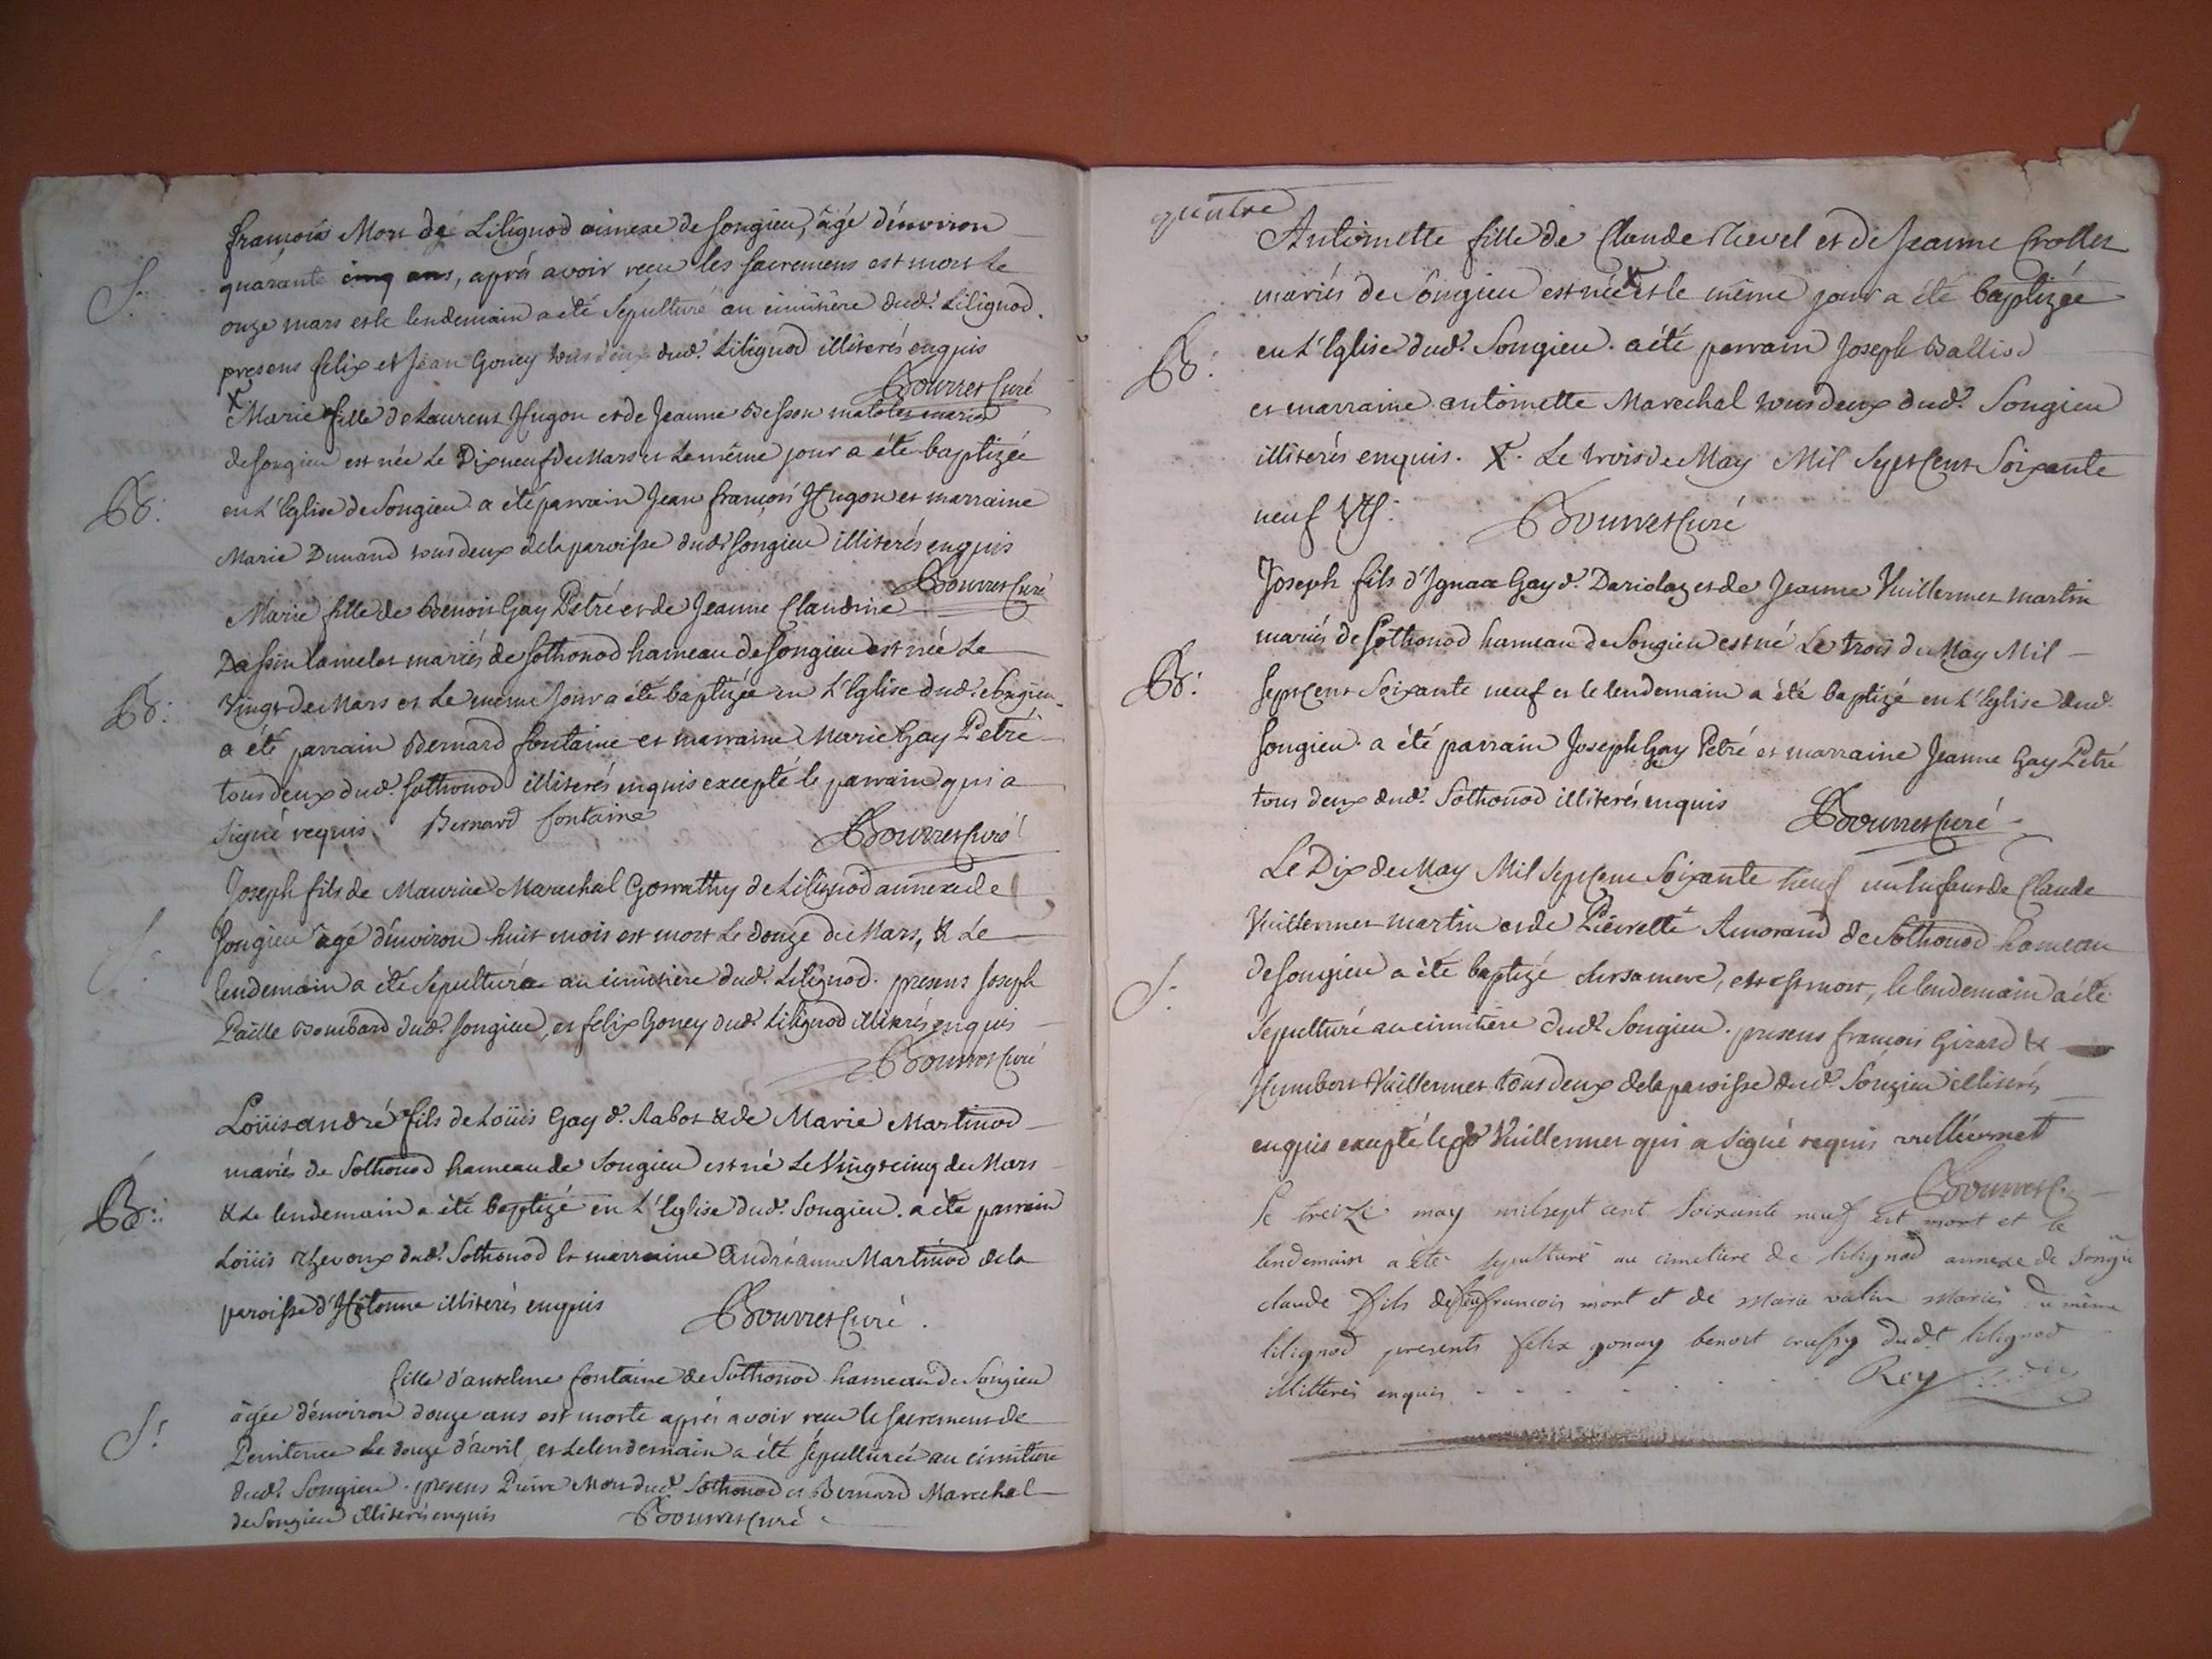 françois Mort de Lilignod annexe de Songieu, âgé d'environ
S.
quarante cinq ans, aprés avoir reçu les sacremens est mort le
onze mars et le lendemain a été sépulturé au cimitière dud.t Lilignod.
presens felix et Jean Goney tous deux dud.t Lilignod illiterés enquis
Bourret Curé
X Marie fille de Laurent Hugon et de Jeanne Besson mariés
de Songieu est née Le Dix neuf de Mars et le même jour a été baptizée
B:
en L'Eglise de Songieu. a été parrain Jean françois Hugon et marraine
Marie Dunand tous deux de la paroisse dud.t Songieu illiterés enquis
Bourret Curé
Marie fille de Benoit Gay Petré et de Jeanne Claudine
Dassin lamelet mariés de Sothonod hameau de Songieu est née Le
B:
Vingt de Mars et Le même Jour a été baptizée en L'Eglise dud.t Songieu.
a été parrain Bernard fontaine et marraine Marie Gay Petré
tous deux dud.t Sothonod illiterés enquis excepté le parrain qui a
signé requis Bernard fontaine
Bourret Curé
Joseph fils de Maurice Marechal Gowathy de Lilignod annexe de
S.
Songieu âgé d'environ huit mois est mort Le douze de Mars, & Le
lendemain a été sepulturé au cimitière dud.t Lilignod. presens Joseph
Paille Bombard dud.t Songieu, et felix Goney dud.t Lilignod illiterés enquis
Bourret Curé
Loüis andré fils de Loüis Gay d.t Rabot & de Marie Martinod
mariés de Sothonod hameau de Songieu est né Le Vingt cinq de Mars
B:
& Le lendemain a été baptizé en L'Eglise dud.t Songieu. a été parrain
Loüis dud.t Sothonod et marraine André anne Martinod de la
paroisse d'Hotonne illiterés enquis Bourret Curé.
fille d'anselme fontaine de Sothonod hameau de Songieu
S:
âgée d'environ douze ans est morte après avoir reçu le sacrement de
Penitence Le douze d'avril, et Le lendemain a été sépulturée au cimitière
dud.t Songieu. presens Pierre Mort dud.t Sothonod et Bernard Marechal
de Songieu illiterés enquis Bourret Curé
quatre
Antoinette fille de Claude et de Jeanne Crollet
mariés de Songieu est née X et le même jour a été baptizée
B:
en L'Eglise dud.t Songieu. a été parrain Joseph Balliod
et marraine antoinette Marechal tous deux dud.t Songieu
illiterés enquis. X. Le trois de May Mil Sept Cent Soixante
neuf Bourret Curé
Joseph fils d'Ignace Gay d.t Dariolaz et de Jeanne Vuillermet martin
mariés de Sothonod hameau de Songieu est né Le trois de May Mil
B:
Sept Cent Soixante neuf et le lendemain a été baptizé en L'Eglise dud.t
Songieu. a été parrain Joseph Gay Petré et marraine Jeanne Gay Petré
tous deux dud.t Sothonod illiterés enquis Bourret Curé
Le Dix de May Mil Sept Cent Soixante neuf un Enfant de Claude
Vuillermet martin et de Pierrette Amorand de Sothonod hameau
S:
de Songieu a été baptizé chez sa mere, et est mort, le lendemain a été
sépulturé au cimitière dud.t Songieu. presens françois Girard &
Humbert Vuillermet tous deux de la paroisse dud.t Songieu illiterés
enquis excepté led.t Vuillermet qui a signé requis vuillermet
Bourret C.
Le treize may mil sept cent soixante neuf est mort et le
lendemain a été sepulturé au cimetiere de lilignod annexe de Songieu
claude fils de feu francois mort et de marie vatin mariés du même
lilignod presents felix gonay benoit crussy dudt lilignod
illitterés enquis Rey